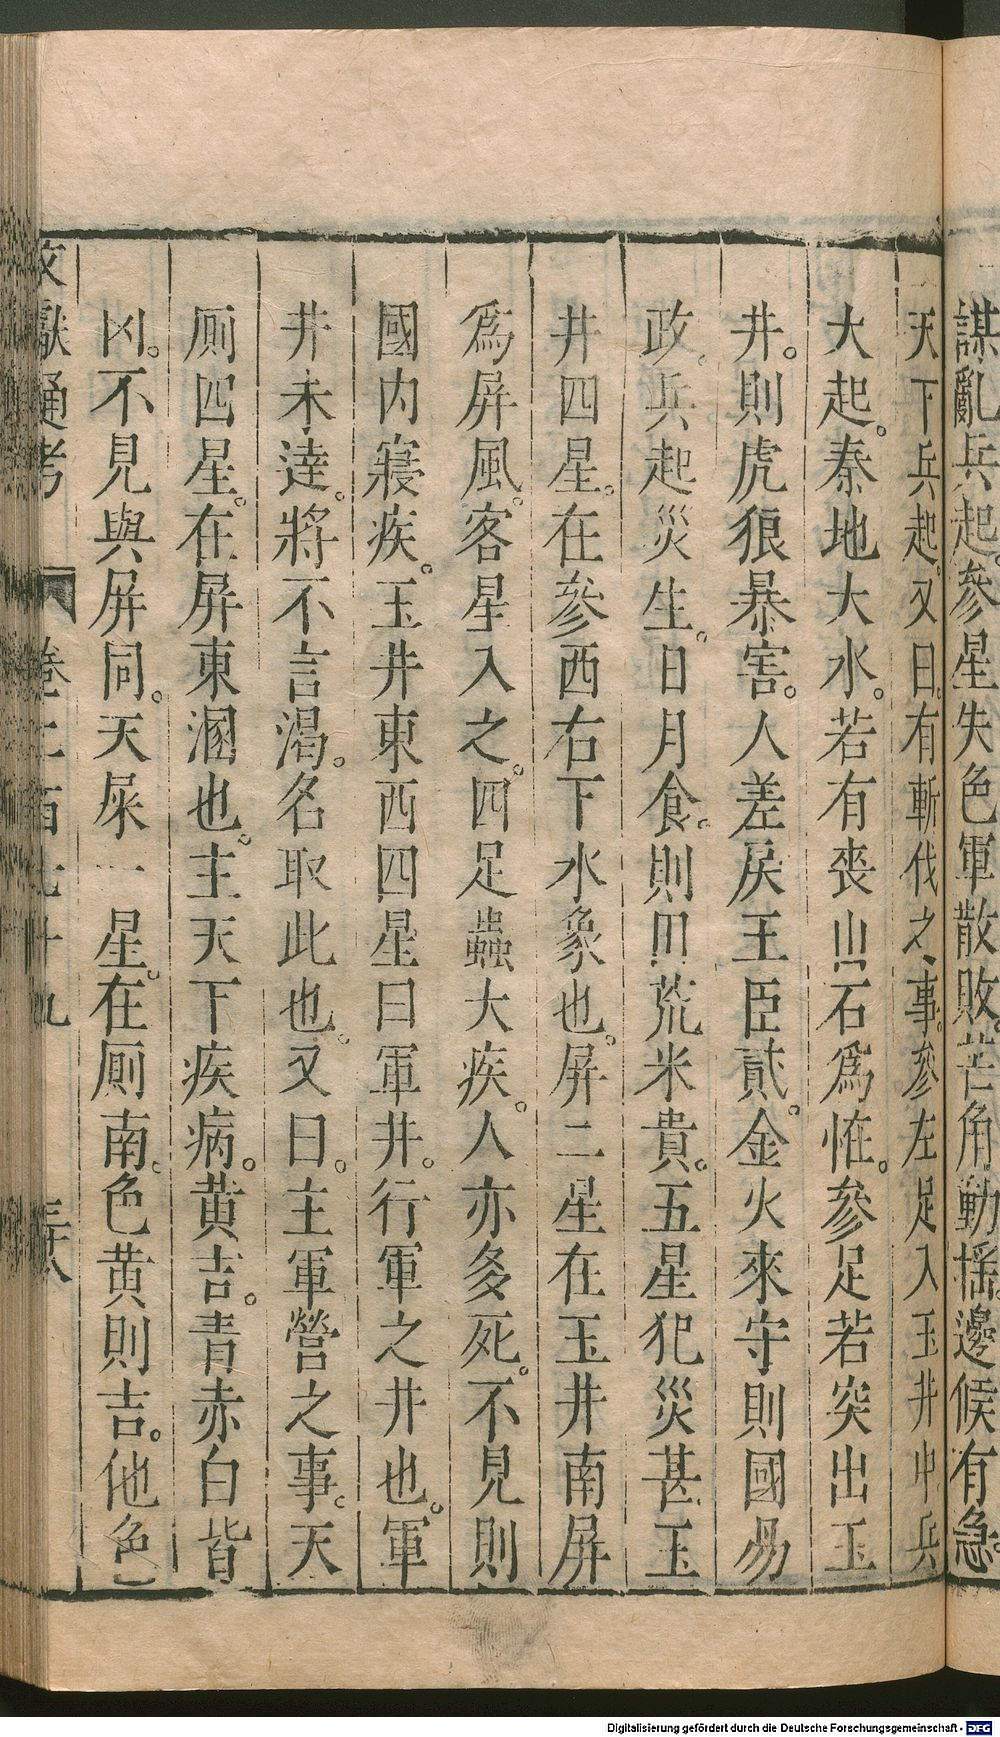 謀亂兵起。參星失色軍散敗。芒角動搖。邊候有急。
天下兵起。又曰。有斬伐之事。參左足入玉井中兵
大起。秦地大水。若有喪山石爲怪。參足若突出玉
井。則虎狼暴害。人差戾王臣貳。金火來守則國易
政。兵起災生。日月食。則田荒米貴。五星犯災甚玉
井四星。在參西右下水象也。屏二星在玉井南屏
爲屏風。客星入之。四足蟲大疾。人亦多死。不見則
國内寢疾。玉井東西四星曰軍井。行軍之井也。軍
井未達。將不言渴。名取此也。又曰。主軍營之事。天
厠四星。在屏東溷也。主天下疾病。黄吉。青赤白皆
凶。不見與屏同。天屎一星。在厠南。色黄則吉。他色
文獻通考 卷二百七十九 三十八
Digitalisierung gefördert durch die Deutsche Forschungsgemeinschaft - DFG